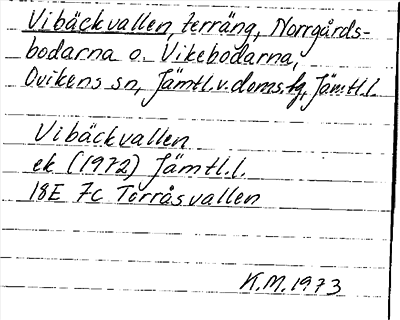 Vibäckvallen, terräng, Norrgårds-
bodarna o. Vikebodarna,
Ovikens sn, Jämtl.v.doms.tg, Jämtl.l.
Vibäckvallen
ek (1972) Jämtl.l.
18E 7c Torråsvallen
K.M. 1973